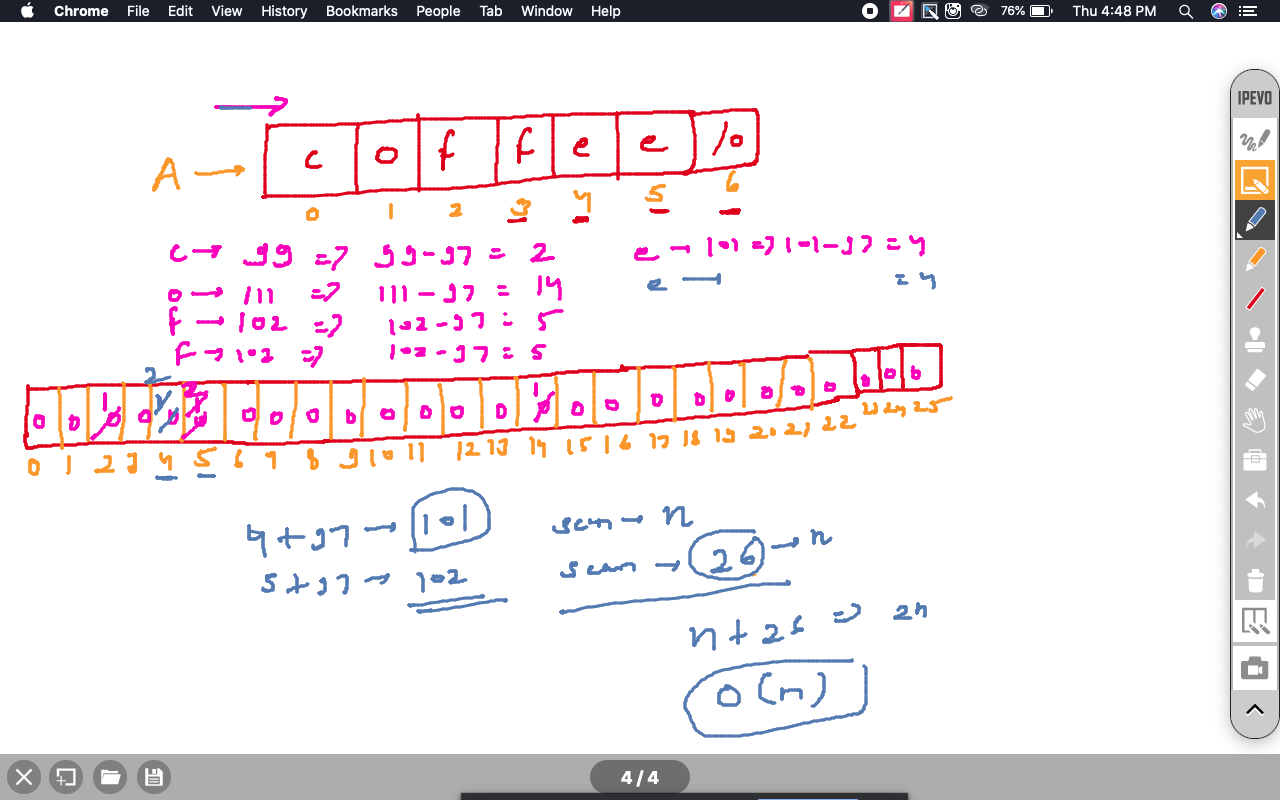 Chrome File Edit View History Bookmarks People Tab Window Help 76% Thu 4:48 PM
IPEVO
A → c o f f e e \0
0 1 2 3 4 5 6
c → 99 => 99-97 = 2 e → 101 => 101-97 = 4
o → 111 => 111-97 = 14 e → = 4
f → 102 => 102-97 = 5
f → 102 => 102-97 = 5
2
1 2 1
0 0 0 0 1 0 1 0 0 0 0 0 0 0 0 0 0 0 0 0 0 0 0 0 0 0 0 0
0 1 2 3 4 5 6 7 8 9 10 11 12 13 14 15 16 17 18 19 20 21 22 23 24 25
4+97 → 101 scan → n
5+97 → 102 scan → 26 → n
n+26 => 2n
O(n)
4/4